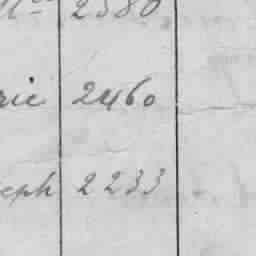 2580
rie 2460
seph 2233